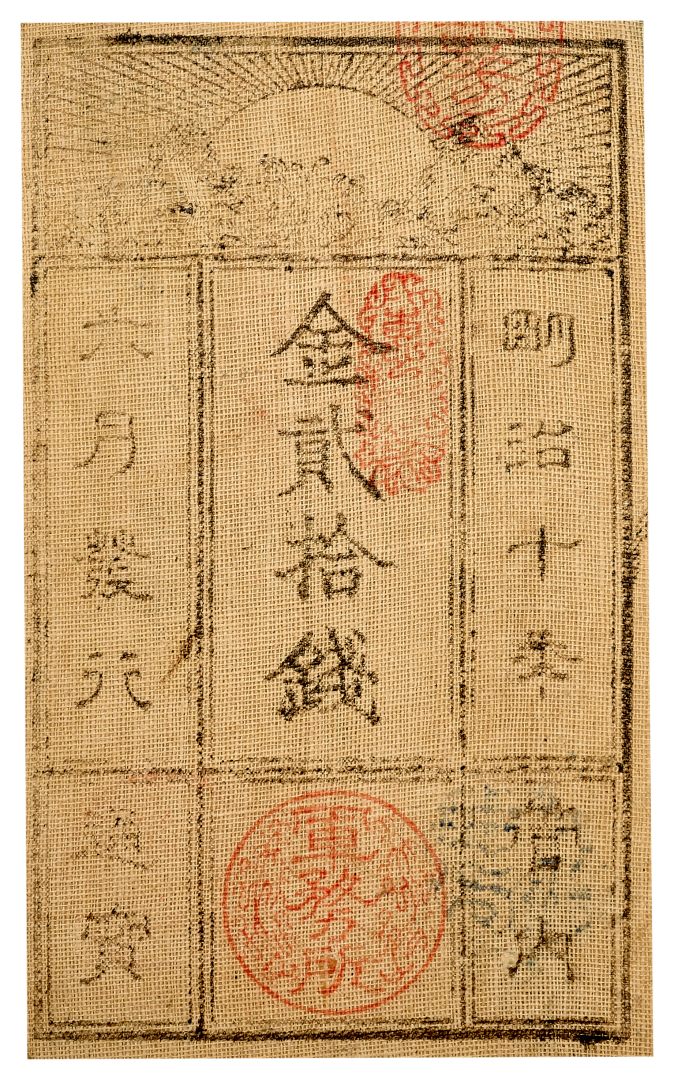 明治十年
金貳拾錢
六月發行
管内
軍務所
通寶